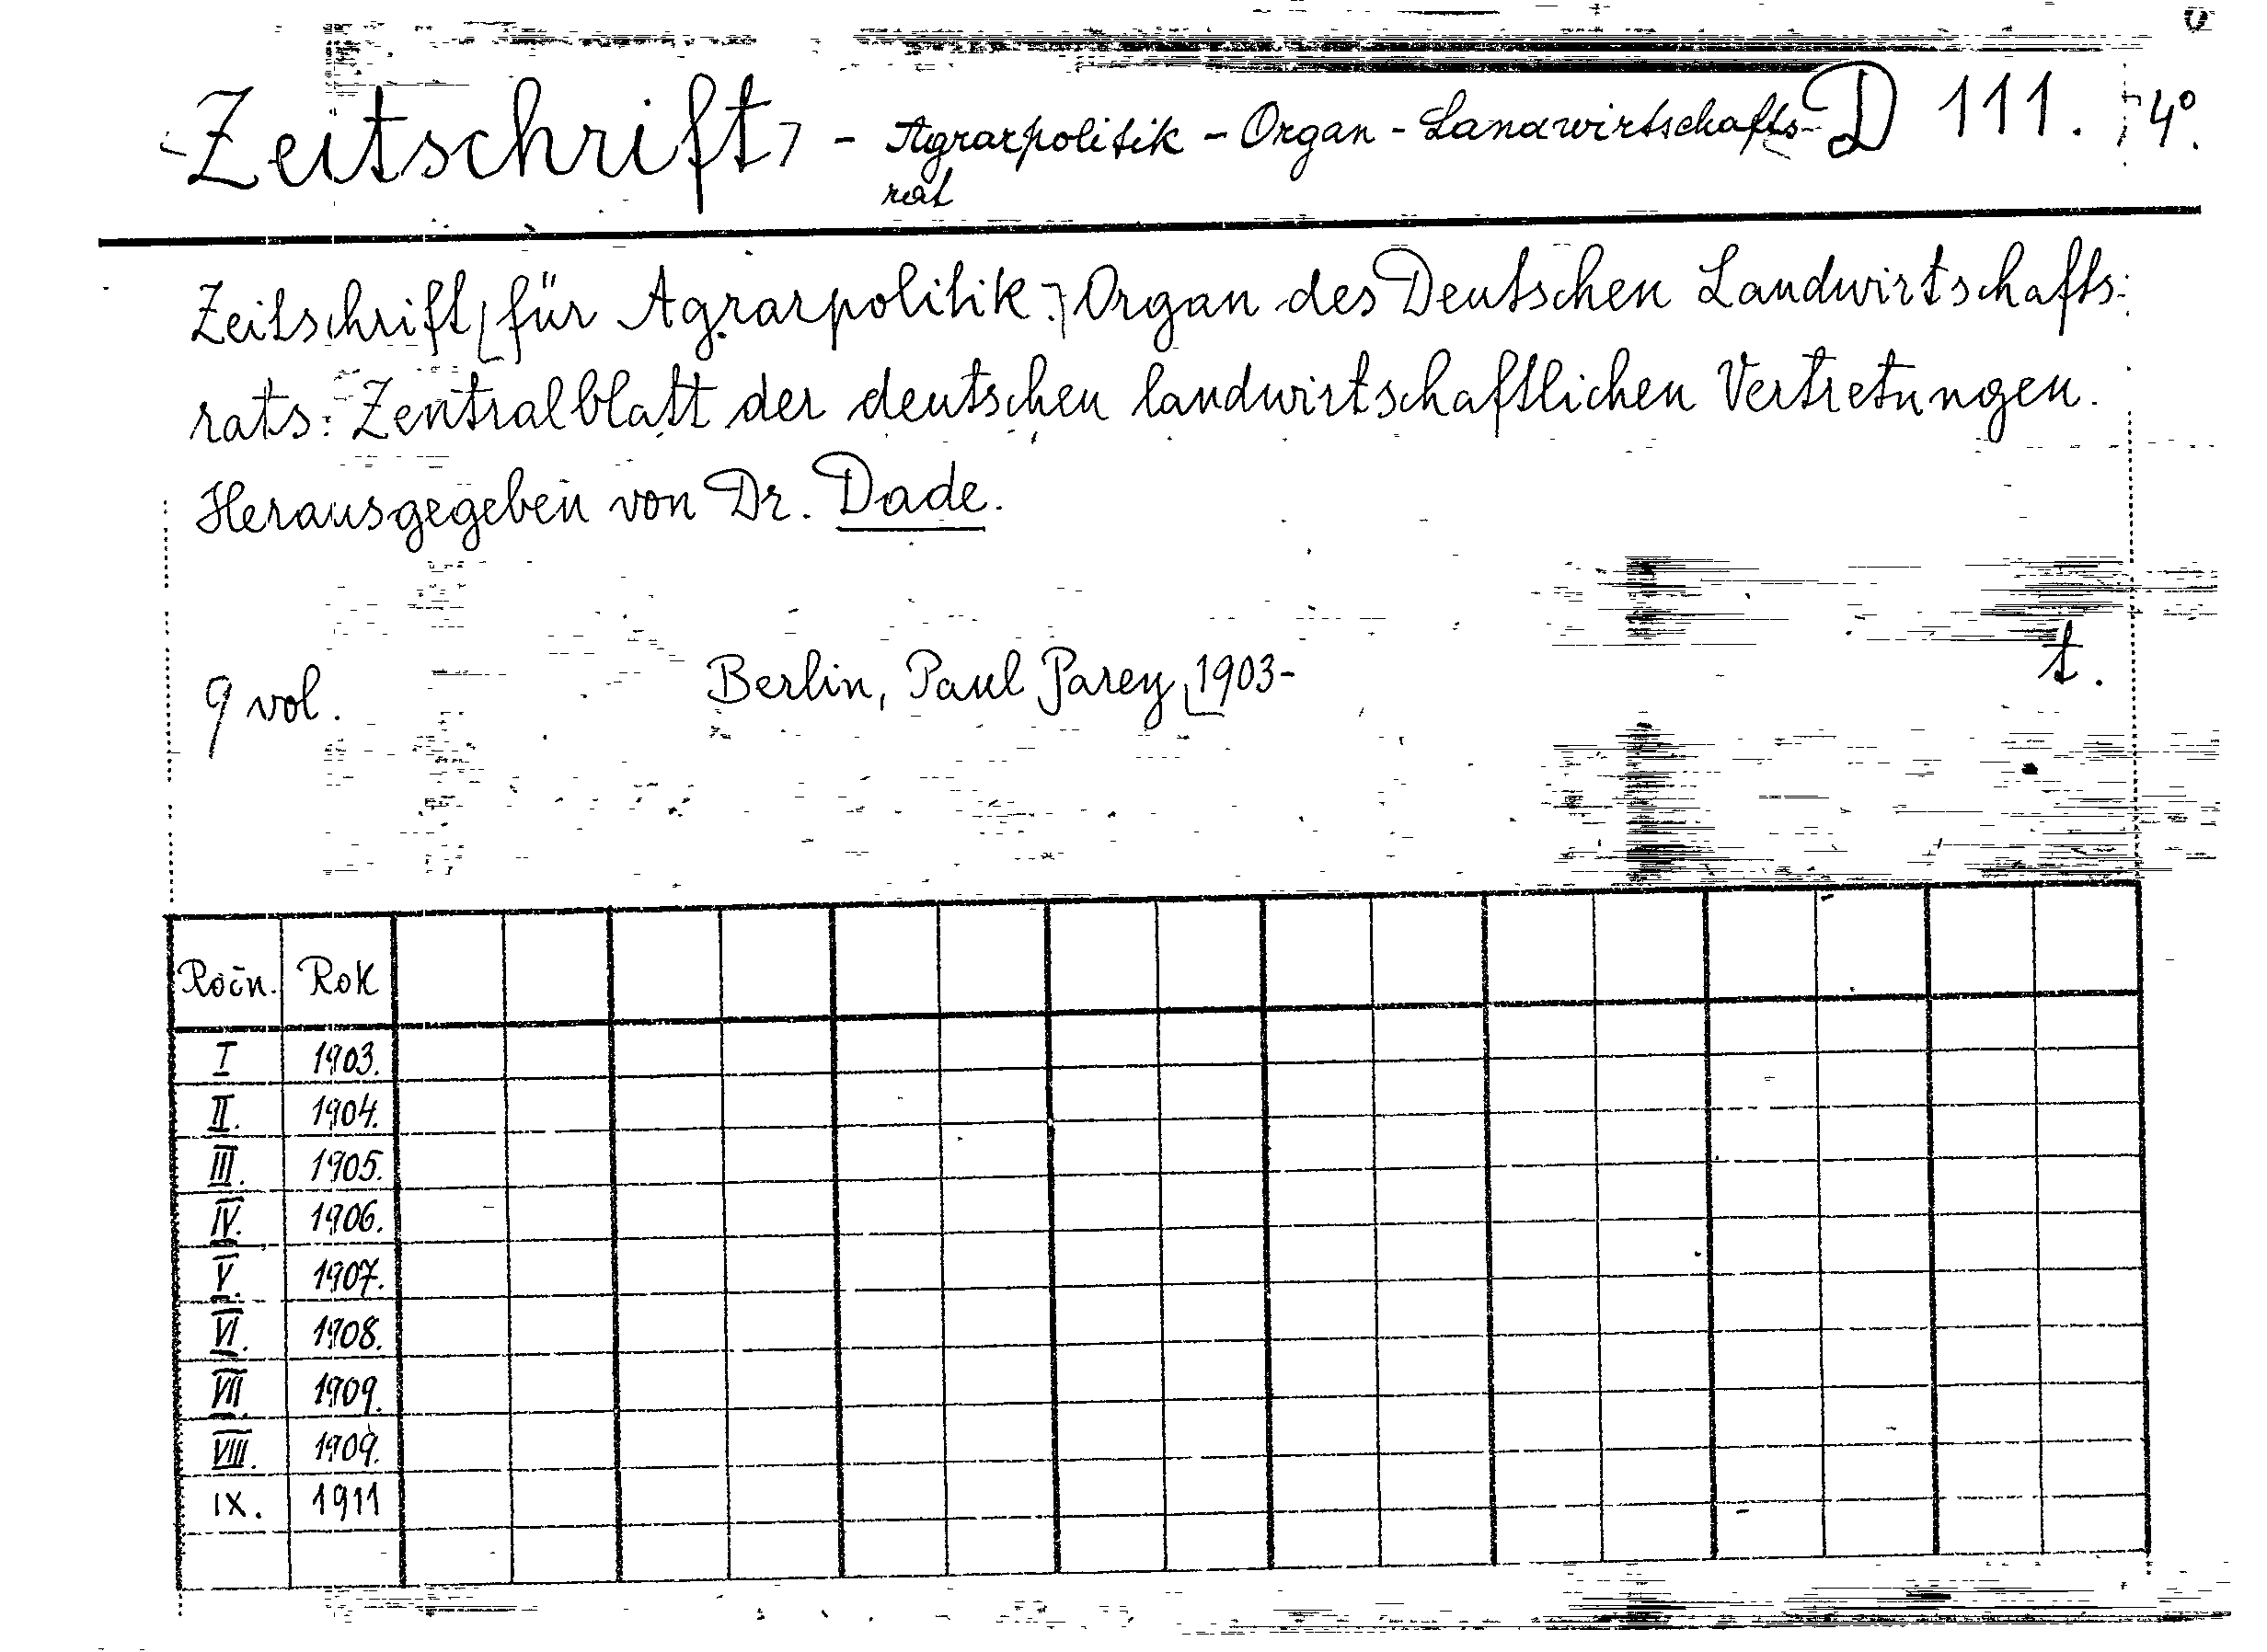 Zeitschrift, - Agrarpolitik - Organ - Landwirtschafts- D 111. 4°.
rat
Zeitschrift für Agrarpolitik. Organ des Deutschen Landwirtschafts-
rats: Zentralblatt der deutschen landwirtschaftlichen Vertretungen.
Herausgegeben von Dr. Dade.
9 vol. Berlin, Paul Parey 1903- t.
Ročn. Rok
I 1903.
II. 1904.
III. 1905.
IV. 1906.
V. 1907.
VI. 1908.
VII. 1909.
VIII. 1909.
IX. 1911